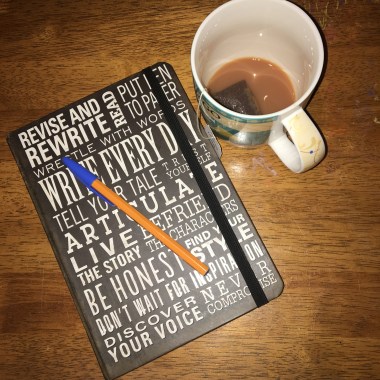 REVISE AND
REWRITE
READ
PUT PEN
TO PAPER
WRESTLE WITH WORDS
WRITE EVERY DAY
TELL YOUR TALE
TRUST
YOURSELF
ARTICULATE
LIVE
THE STORY
BEFRIEND
THE CHARACTERS
BE HONEST
FIND YOUR
STYLE
DON'T WAIT FOR INSPIRATION
DISCOVER
YOUR VOICE
NEVER
COMPROMISE